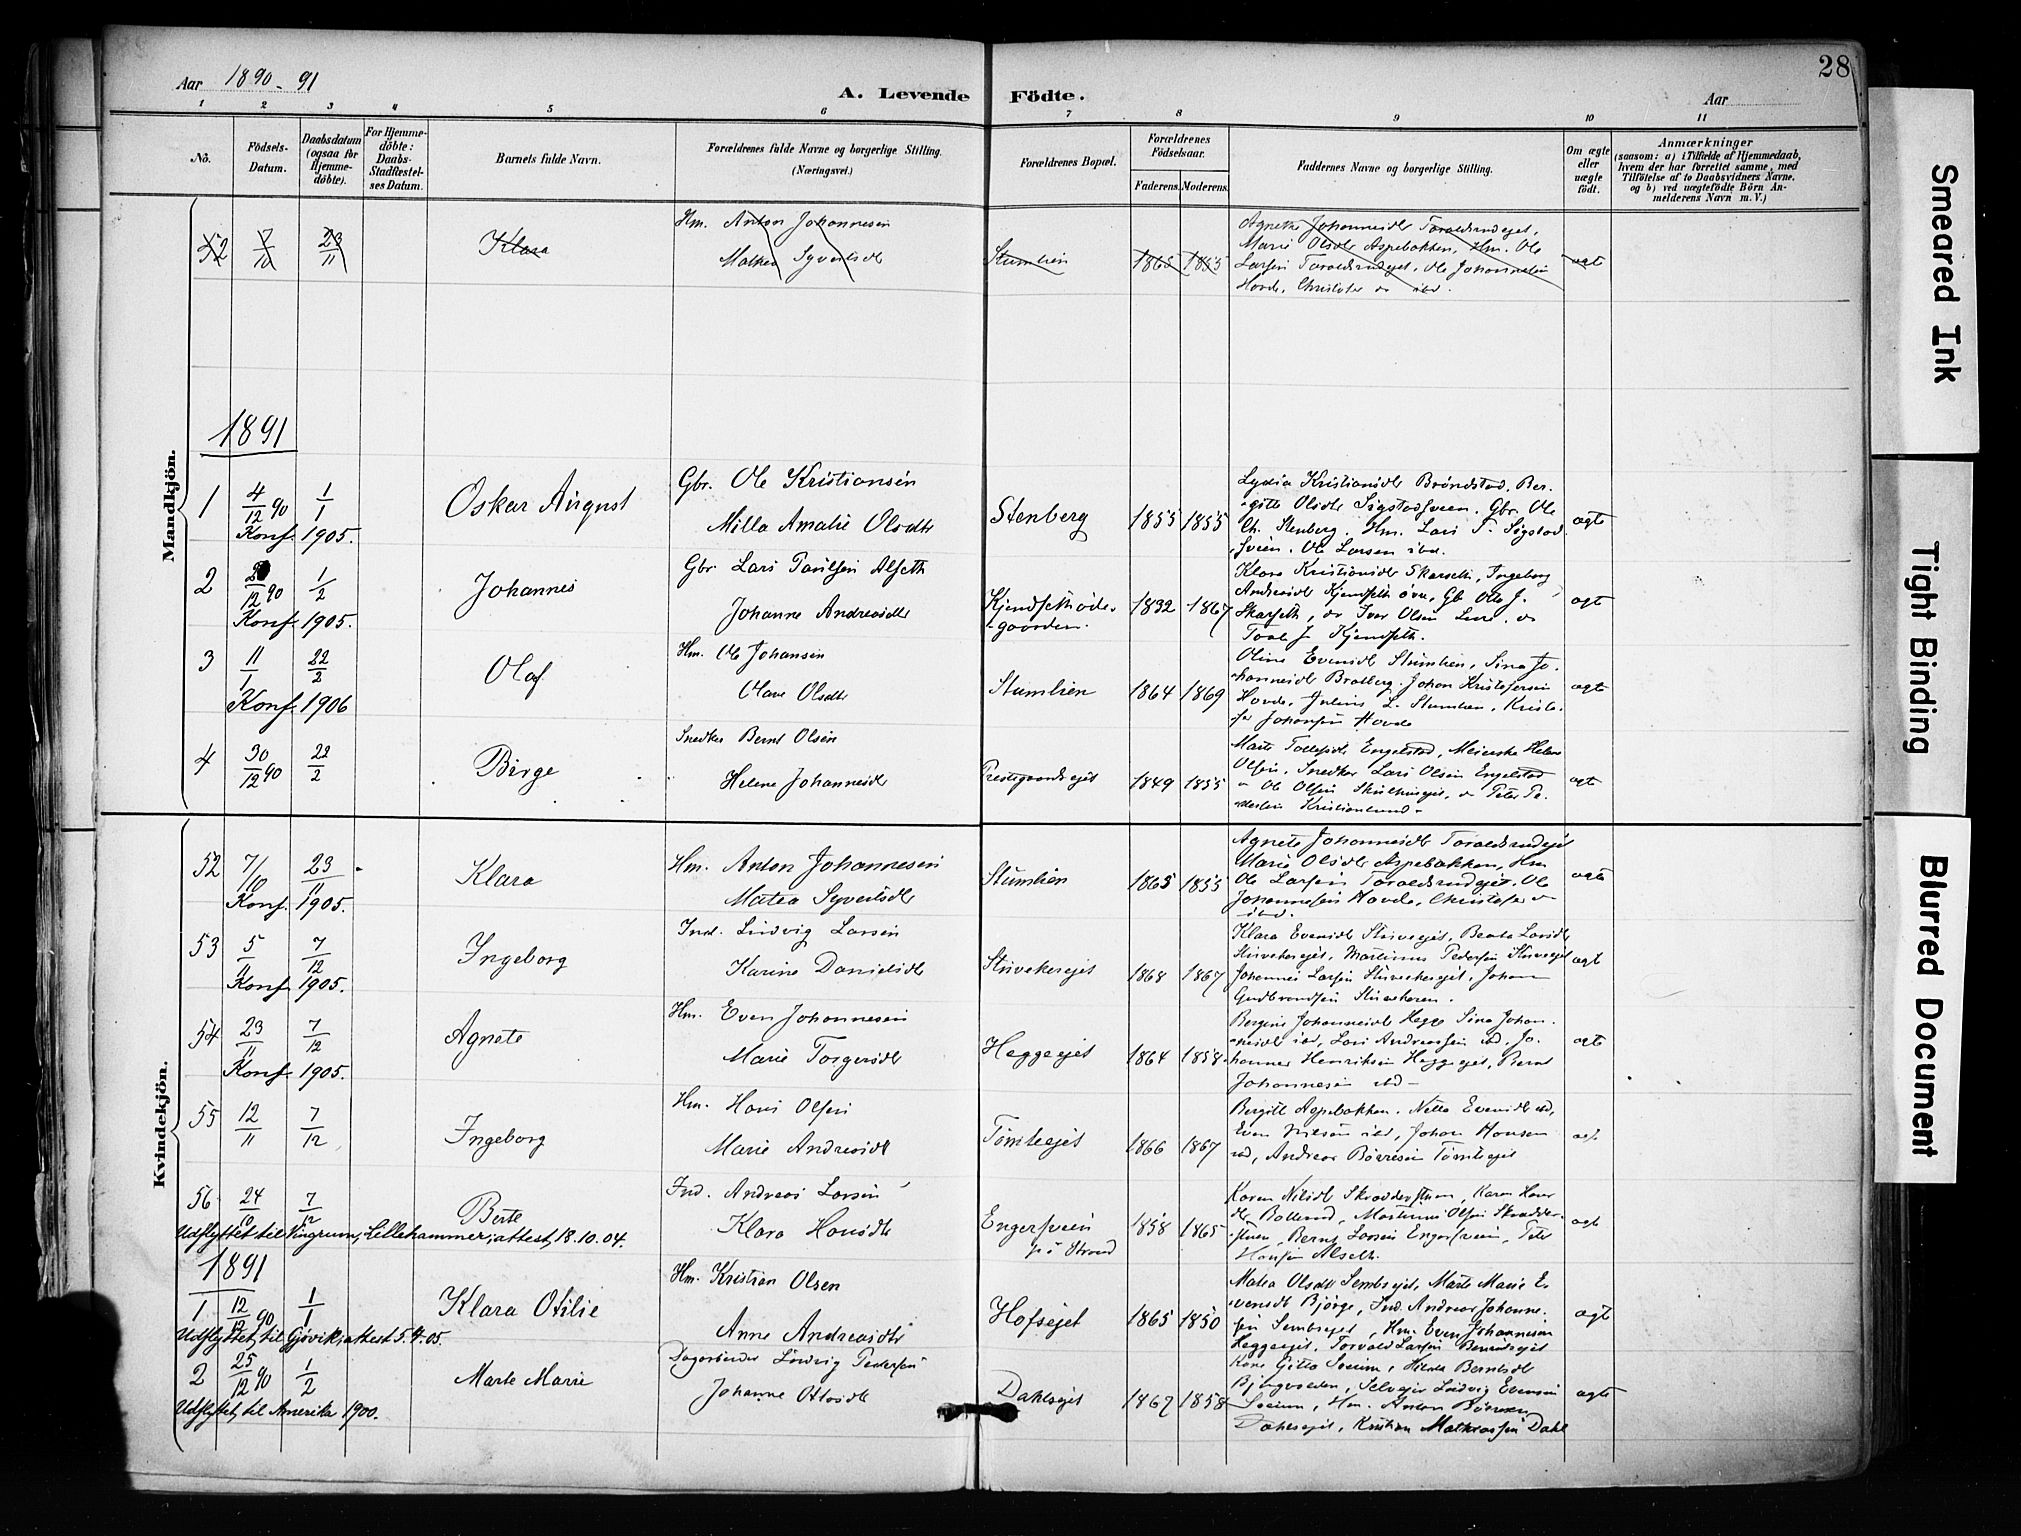 28
Aar 1890-91
A. Levende Födte.
Aar
1 2 3 4 5 6 7 8 9 10 11
No.
Födsels-Datum.
Daabsdatum (ogsaa for Hjemme-döbte).
For Hjemme-döbte: Daabs-Stadfæstel-ses Datum.
Barnets fulde Navn.
Forældrenes fulde Navne og borgerlige Stilling.
(Næringsvei.)
Forældrenes Bopæl.
Forældrenes Födselsaar.
Faderens. Moderens.
Faddernes Navne og borgerlige Stilling.
Om ægte eller uægte födt.
Anmærkninger
(saasom: a) i Tilfælde af Hjemmedaab,
hvem der har forrettet samme, med
Tilföielse af to Daabsvidners Navne,
og b) ved uægtefödte Börn An-
melderens Navn m. V.)
Mandkjön.
52 7/10 23/11 Klara
Hm. Anton Johannesen
Mathea Syvertsdt
Stumlien 1865 1855
Agnethe Johannesdt Toraldsrudejet,
Marie Olsdt Aspebakken, Hm. Ole
Larsen Toraldsrudejet, Ole Johannesen
Hovde, Christofer do ibd.
agt
1891
1 4/12 90 1/1 Oskar August
Gbr. Ole Kristiansen
Milla Amalie Olsdtr
Stenberg 1855 1855
Lydia Kristiansdt Bröndstad, Ber-
gitte Olsdt Sigstadsveen. Gbr. Ole
Ch. Stenberg. Hm. Lars T. Sigstad
sveen. Ole Larsen ibd.
agte
Konf. 1905.
2 12 90 1/2 Johannes
Gbr. Lars Paulsen Alseth
Johanne Andreasdtr
Kjendseth öde-
gaarden. 1832 1867
Klara Kristiansdt Skarseth, Ingeborg
Andreasdt Kjendseth övre, Gb Ole J.
Skarseth, do Iver Olsen
Kjendseth.
agt
Konf. 1905.
3 11/1 22/2 Olaf
Hm. Ole Johansen
Olave Olsdtr
Stumlien 1864 1869
Oline Evensdt Stumlien, Sina Jo-
hannesdt Bratberg. Johan Kristofersen
Hovde, Julius L. Stumlien, Kristo-
fer Johansen Hovde
agte
Konf. 1906
4 30/12 90 22/2 Birge
Snedker Bernt Olsen
Helene Johannesdt
Prestegaardsejet 1849 1855
Engelstad, Meierske Helene
Olsen, Snedker Lars Olsen Engelstad
Ole Olsen do Peter Pe-
dersen Kristianlund
agt
Kvindekjön.
52 7/10 23/11 Klara
Hm. Anton Johannesen
Matea Syvertsdt
Stumlien 1865 1855
Agnete Johannesdt Toraldsrudejet
Marie Olsdt Aspebakken, Hm
Ole Larsen Toraldsrudejet. Ole
Johannesen Hovde, Christofer do
ibd.
agte
Konf. 1905.
53 5/11 7/12 Ingeborg
Ind. Ludvig Larsen
Karine Danielsdt
Stuvekerejet 1868 1867
Klara Evensdt Beate Larsdt
Martinus Pedersen
Johannes Larsen Johan
Gudbrandsen
agt
Konf. 1905.
54 23/11 7/12 Agnete
Hm. Even Johannesen
Marie Torgersdt
Heggeejet 1864 1858
Bergine Johannesdt Hegge Sina Johan-
nesdt ibd, Lars Andreassen ibd, Jo-
hannes Henriksen Heggeejet, Bernt
Johannesen ibd
agt
Konf. 1905.
55 12/11 7/12 Ingeborg
Hm. Hans Olsen
Marie Andreasdt
Tömteejet 1866 1867
Bergitt Aspebakken. Netta Evensdt ibd,
Even Nilsen ibd, Johan Hansen
ibd, Andreas Börresen Tömteejet
agt
56 24/10 7/12 Berte
Ind. Andreas Larsen
Klara Hansdt
Engersveen
på Strand 1858 1865
Karen Nilsdt Skræddersstuen, Karen Hans
dt Ballerud, Martinus Olsen Skrædder-
stuen, Bernt Larsen Engersveen, Peter
Hansen Alseth.
agt
Udflyttet til Vingrum, Lillehammer; attest 18.10.04.
1891
1 12/12 90 1/1 Klara Otilie
Hm. Kristian Olsen
Anne Andreasdtr
Hofsejet 1865 1850
Matea Olsdtt Sembsejet, Marte Marie E-
vensdt Björge, Ind. Andreas Johanne-
sen Sembsejet, Hm. Even Johannesen
Heggeejet, Torvald Larsen
agt
Udflyttet til Gjövik, attest 5.4.05.
2 25/12 90 1/2 Marte Marie
Dagarbeider Ludvig Pedersen
Johanne Ottosdt
Dahlsejet 1867 1858
Kone Gitta Hilda Berntsdt
Selvejer Ludvig Evensen
Hm. Anton
Dahlsejet, Kristian Mathiassen Dahl
agte
Udflyttet til Amerika 1900.
Smeared Ink
Tight Binding
Blurred Document